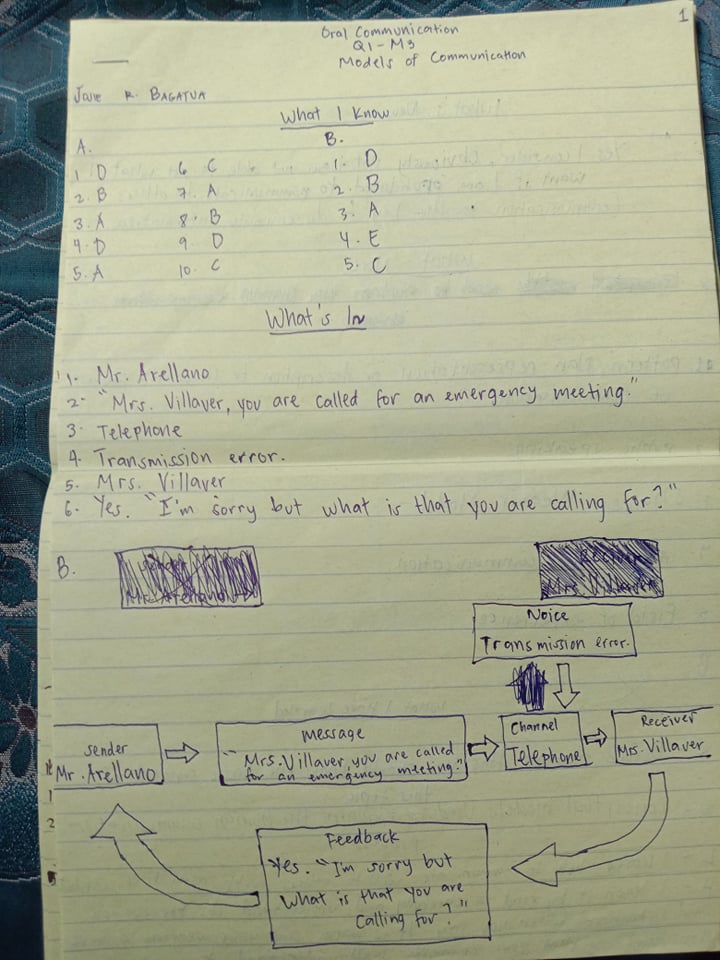 1
Oral Communication
Q1 - M3
Models of Communication
R. BAGATUA
What I Know
A.
B.
1. D 6. C 1. D
2. B 7. A 2. B
3. A 8. B 3. A
4. D 9. D 4. E
5. A 10. C 5. C
What's In
1. Mr. Arellano
2. "Mrs. Villaver, you are called for an emergency meeting."
3. Telephone
4. Transmission error.
5. Mrs. Villaver
6. Yes. "I'm sorry but what is that you are calling for?"
B.
Noice
Transmission error.
sender
Mr. Arellano
message
"Mrs. Villaver, you are called
for an emergency meeting."
Channel
Telephone
Receiver
Mrs. Villaver
Feedback
Yes. "I'm sorry but
What is that you are
calling for?"